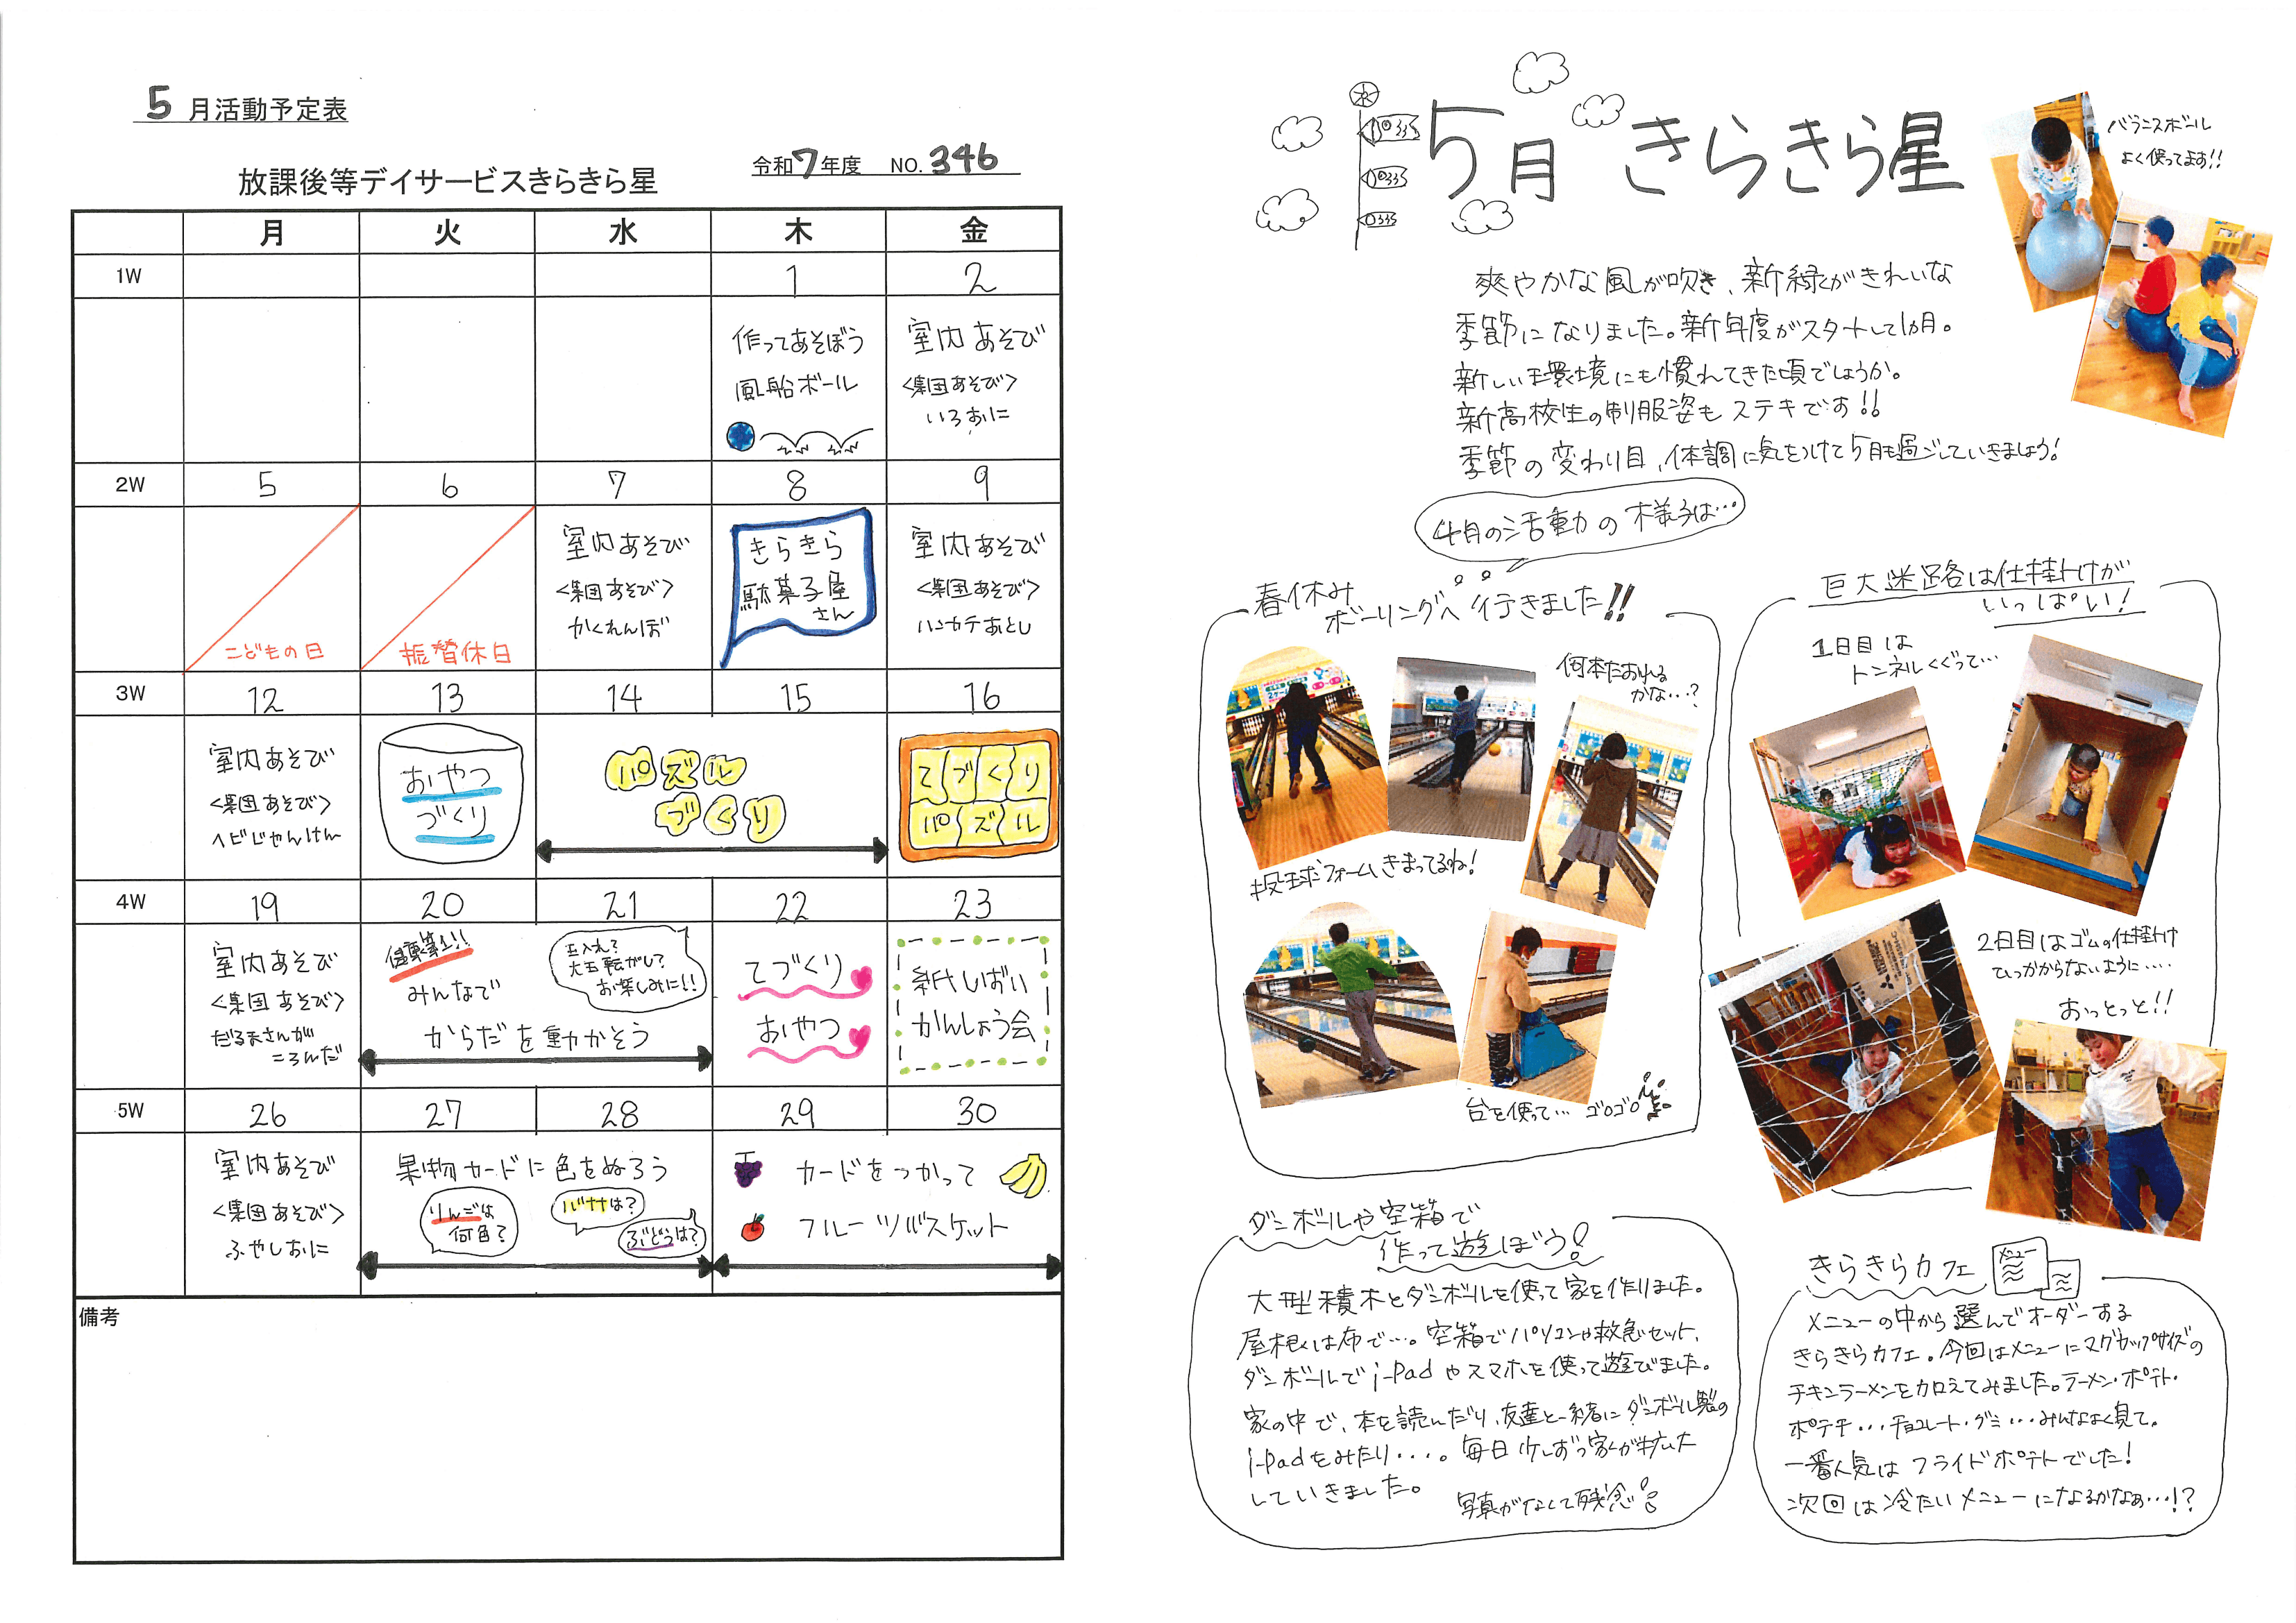 5月活動予定表
令和7年度 NO.346
放課後等デイサービスきらきら星
月 火 水 木 金
1W 1 2
作ってあそぼう
風船ボール
室内あそび
<集団あそび>
いろおに
2W 5 6 7 8 9
こどもの日
振替休日
室内あそび
<集団あそび>
かくれんぼ
きらきら
駄菓子屋
さん
室内あそび
<集団あそび>
ハンカチおとし
3W 12 13 14 15 16
室内あそび
<集団あそび>
ヘビじゃんけん
おやつ
づくり
パズル
づくり
てづくり
パズル
4W 19 20 21 22 23
室内あそび
<集団あそび>
だるまさんが
ころんだ
健康第一!!
みんなで
からだを動かそう
玉入れ?
大玉転がし?
お楽しみに!!
てづくり
おやつ
紙しばい
かんしょう会
5W 26 27 28 29 30
室内あそび
<集団あそび>
ふやしおに
果物カードに色をぬろう
りんごは
何色?
バナナは?
ぶどうは?
カードをつかって
フルーツバスケット
備考
5月 きらきら星
バランスボール
よく使ってます!!
爽やかな風が吹き、新緑がきれいな
季節になりました。新年度がスタートして1ヵ月。
新しい環境にも慣れてきた頃でしょうか。
新高校生の制服姿もステキです!!
季節の変わり目、体調に気をつけて5月も過ごしていきましょう!
4月の活動の様子は…
春休み
ボーリングへ行きました!!
何本たおれる
かな…?
投球フォームきまってるね!
台を使って… ゴロゴロ
巨大迷路は仕掛けが
いっぱい!
1日目は
トンネルくぐって…
2日目はゴムの仕掛け
ひっかからないように….
おっとっと!!
ダンボールや空箱で
作って遊ぼう!
大型積木とダンボールを使って家を作りました。
屋根は布で…。空箱でパソコンや救急セット、
ダンボールでi-Padやスマホを使って遊びました。
家の中で、本を読んだり、友達と一緒にダンボール製の
i-Padをみたり・・・。毎日少しずつ家が拡大
していきました。
写真がなくて残念
きらきらカフェ
メニュー
メニューの中から選んでオーダーする
きらきらカフェ。今回はメニューにマグカップサイズの
チキンラーメンを加えてみました。ラーメン・ポテト・
ポテチ…チョコレート・グミ…みんなよく見て。
一番人気はフライドポテトでした!
次回は冷たいメニューになるかなぁ…!?